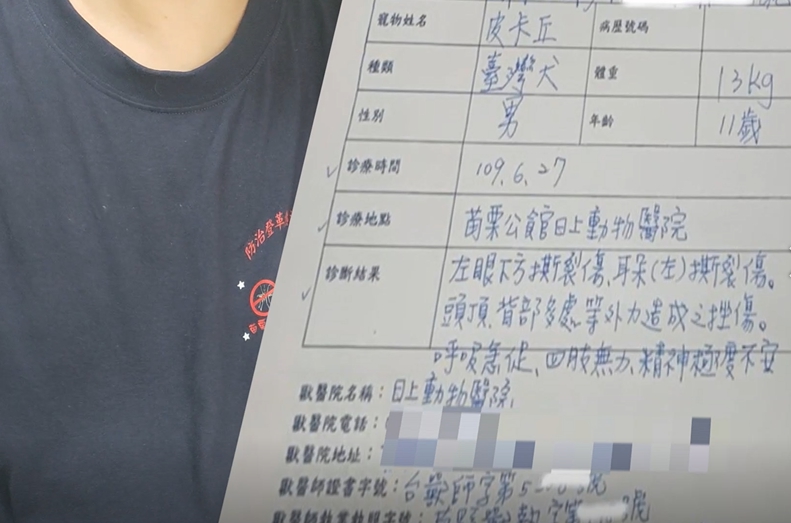 寵物姓名 皮卡丘 病歷號碼
種類 臺灣犬 體重 13kg
性別 男 年齡 11歲
診療時間 109.6.27
診療地點 苗栗公館日上動物醫院
診斷結果 左眼下方撕裂傷、耳朵(左)撕裂傷。
頭頂、背部多處等外力造成之挫傷。
呼吸急促、四肢無力、精神極度不安
獸醫院名稱：日上動物醫院
獸醫院電話：
獸醫院地址：
獸醫師證書字號：台獸師字第5 號
獸醫師執業執照字號：
防治登革